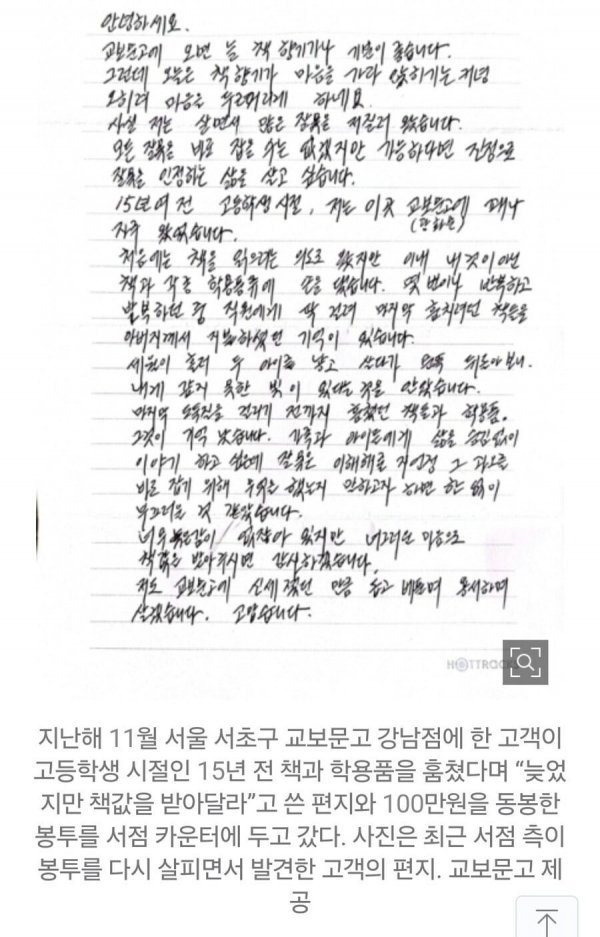 안녕하세요.
교보문고에 오면 늘 책 향기가나 기분이 좋습니다.
그런데 오늘은 책 향기가 마음을 가라 앉히기는 커녕
오히려 마음을 무르머리게 하네요.
사실 저는 살면서 많은 잘못을 저질러 왔습니다.
모든 잘못을 바로 잡을 수는 없겠지만 가능하다면 진정으로
잘못을 인정하는 삶을 살고 싶습니다.
15년여 전 고등학생 시절, 저는 이곳 교보문고에 꽤나
(광화문)
자주 왔었습니다.
처음에는 책을 읽으려는 의도로 왔지만 이내 내 것이 아닌
책과 각종 학용품류에 손을 댔습니다. 몇 번이나 반복하고
반복하던 중 직원에게 딱 걸려 마지막 훔치려던 책들을
아버지께서 지불하셨던 기억이 있습니다.
세월이 흘러 두 아이를 낳고 살다가 문득 뒤돌아 보니
내게 갚지 못한 빚이 있다는 것을 알았습니다.
마지막 도둑질을 걸리기 전까지 훔쳤던 책들과 학용품.
그것이 기억 났습니다. 가족과 아이들에게 삶을 숨김없이
이야기 하고 싶은데 잘못은 이해해줄지언정 그 과오를
바로 잡기 위해 무엇을 했는지 말하고자 하면 한 없이
부끄러울 것 같았습니다.
너무 늦은감이 없잖아 있지만 너그러운 마음으로
책값을 받아주시면 감사하겠습니다.
저도 교보문고에 신세졌던 만큼 돕고 베풀며 용서하며
살겠습니다. 고맙습니다.
HOTTRACKS
지난해 11월 서울 서초구 교보문고 강남점에 한 고객이
고등학생 시절인 15년 전 책과 학용품을 훔쳤다며 “늦었
지만 책값을 받아달라”고 쓴 편지와 100만원을 동봉한
봉투를 서점 카운터에 두고 갔다. 사진은 최근 서점 측이
봉투를 다시 살피면서 발견한 고객의 편지. 교보문고 제
공